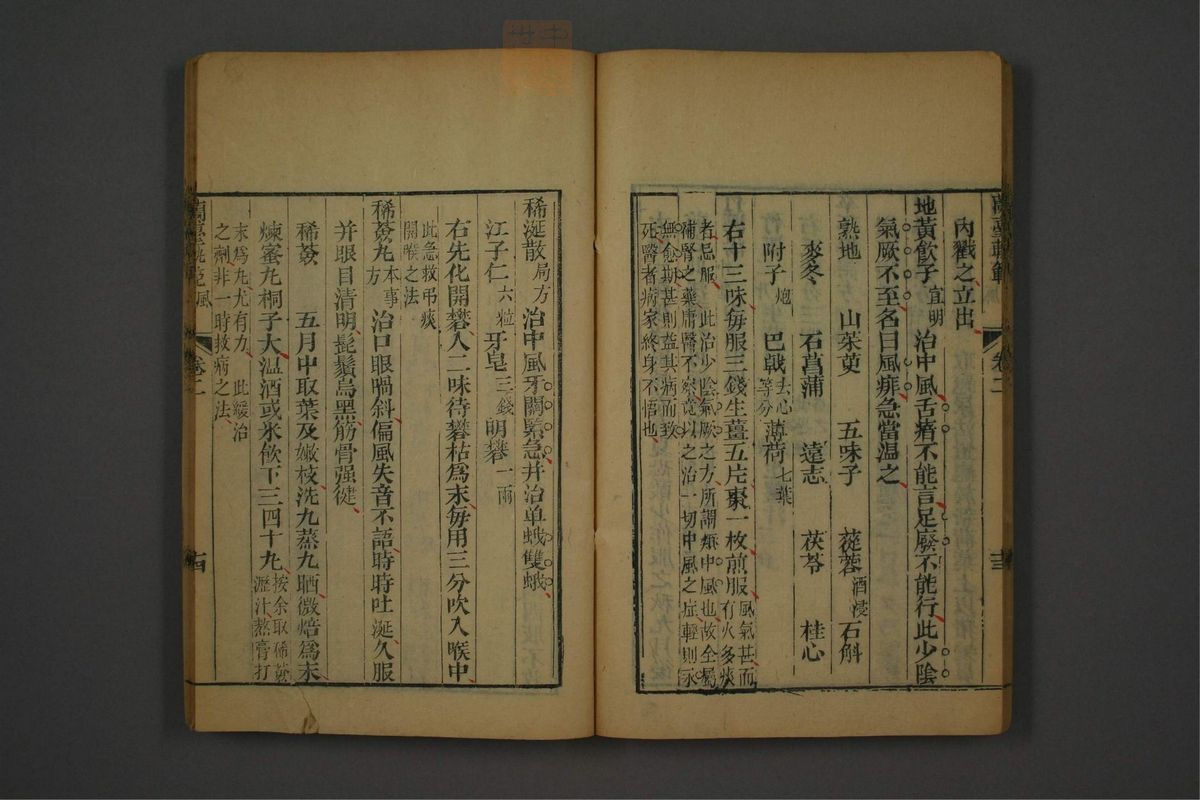 內戳之立出
地黃飲子宜明 治中風舌瘖不能言足廢不能行此少陰
氣厥不至名曰風痱急當温之
熟地 山茱萸 五味子 蓯蓉酒浸 石斛
麥冬 石菖蒲 遠志 茯苓 桂心
附子炮 巴戟去心等分 薄荷七葉
右十三味每服三錢生薑五片棗一枚煎服風氣甚而有火多痰
者忌服 此治少陰氣厥之方所謂類中風也故全屬
補腎之藥庸醫不察竟以之治一切中風之症輕則永
無愈期甚則益其病而致
死醫者病家終身不悟也
卷二
十三
稀涎散局方 治中風牙關緊急并治单蛾雙蛾
江子仁六粒 牙皂三錢 明礬一兩
右先化開礬入二味待礬枯爲末每用三分吹入喉中
此急救弔痰
開喉之法
稀薟丸本事方 治口眼喎斜偏風失音不語時時吐涎久服
并眼目清明髭鬚烏黑筋骨强健
稀薟 五月中取葉及嫩枝洗九蒸九晒微焙爲末
煉蜜丸桐子大温酒或米飲下三四十丸按余取稀薟瀝汁熬膏打
末爲丸尤有力 此緩治
之劑非一時救病之法
蘭臺軌範 風
卷二
十四